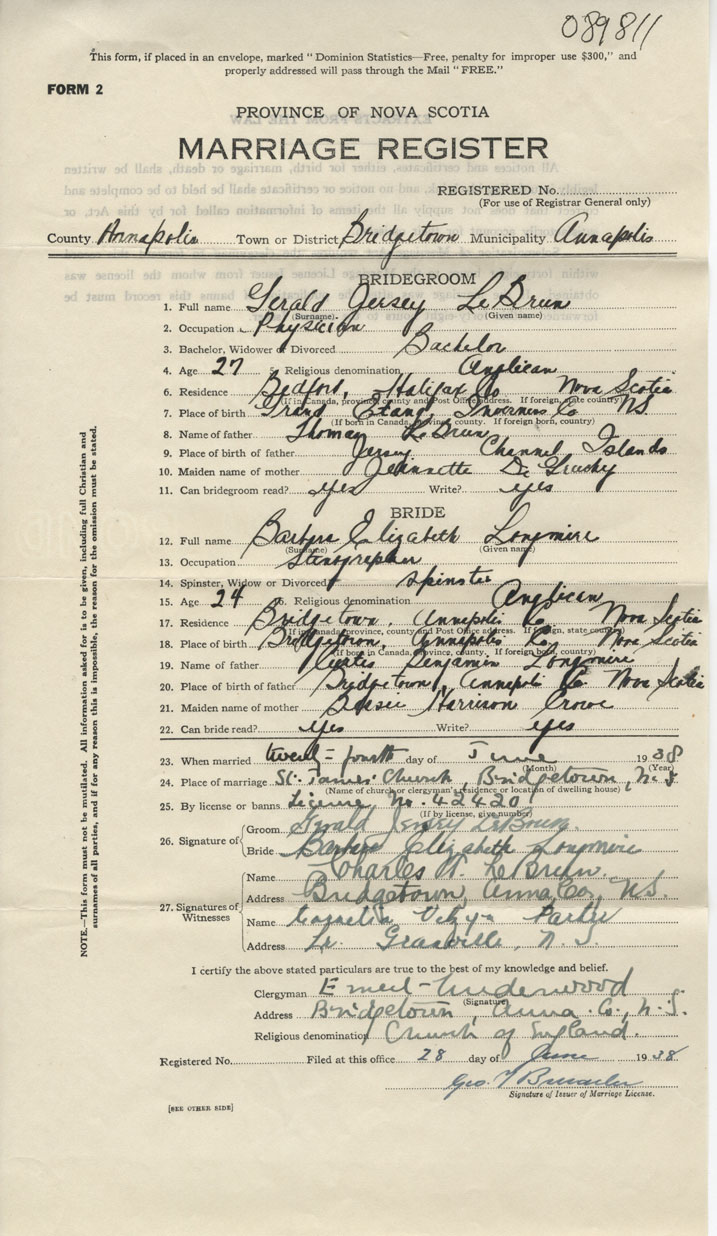 089811
This form, if placed in an envelope, marked "Dominion Statistics—Free, penalty for improper use $300," and
properly addressed will pass through the Mail "FREE."
FORM 2
PROVINCE OF NOVA SCOTIA
MARRIAGE REGISTER
REGISTERED No.
(For use of Registrar General only)
County Annapolis Town or District Bridgetown Municipality Annapolis
BRIDEGROOM
1. Full name Gerald Jersey LeBrun
(Surname) (Given name)
2. Occupation Physician
3. Bachelor, Widower or Divorced Bachelor
4. Age 27 5. Religious denomination Anglican
6. Residence Bedford, Halifax Co Nova Scotia
(If in Canada, province, county and Post Office address. If foreign, state country)
7. Place of birth Grand Etang, Inverness Co NS.
(If born in Canada, province, county. If foreign born, country)
8. Name of father Thomas LeBrun
9. Place of birth of father Jersey Channel Islands
10. Maiden name of mother Jeannette De Gruchy
11. Can bridegroom read? yes Write? yes
BRIDE
12. Full name Barbara Elizabeth Longmire
(Surname) (Given name)
13. Occupation Stenographer
14. Spinster, Widow or Divorced Spinster
15. Age 24 16. Religious denomination Anglican
17. Residence Bridgetown, Annapolis Co Nova Scotia
(If in Canada province, county and Post Office address. If foreign, state country)
18. Place of birth Bridgetown, Annapolis Co. Nova Scotia
(If born in Canada, province, county. If foreign born, country)
19. Name of father Curtis Benjamin Longmire
20. Place of birth of father Bridgetown, Annapolis Co. Nova Scotia
21. Maiden name of mother Bessie Harrison Crowe
22. Can bride read? yes Write? yes
23. When married twenty-fourth day of June 1938
(Month) (Year)
24. Place of marriage St. James' Church, Bridgetown, N.S
(Name of church or clergyman's residence or location of dwelling house)
25. By license or banns License No. 42420
(If by license, give number)
26. Signature of
Groom Gerald Jersey LeBrun.
Bride Barbara Elizabeth Longmire
27. Signatures of Witnesses
Name Charles W. LeBrun.
Address Bridgetown, Anna Co, N.S.
Name Parker
Address Lr. Granville, N.S.
I certify the above stated particulars are true to the best of my knowledge and belief.
Clergyman Underwood
(Signature)
Address Bridgetown, Anna. Co., N.S.
Religious denomination Church of England.
Registered No. Filed at this office 28 day of June 1938
Geo.
Signature of Issuer of Marriage License.
[SEE OTHER SIDE]
NOTE.—This form must not be mutilated. All information asked for is to be given, including full Christian and
surnames of all parties, and if for any reason this is impossible, the reason for the omission must be stated.